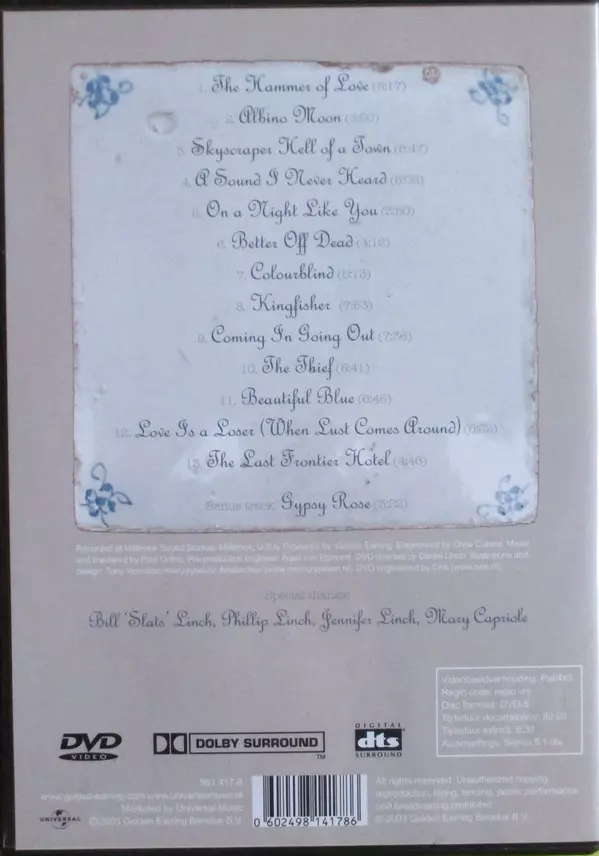 1. The Hammer of Love (5:17)
2. Albino Moon
3. Skyscraper Hell of a Town
4. A Sound I Never Heard
5. On a Night Like You
6. Better Off Dead (4:12)
7. Colourblind (5:13)
8. Kingfisher (7:53)
9. Coming In Going Out (7:36)
10. The Thief (5:41)
11. Beautiful Blue (6:45)
12. Love Is a Loser (When Lust Comes Around)
13. The Last Frontier Hotel (4:46)
Bonus track: Gypsy Rose
Recorded at Millbrook Sound Studios, Millbrook, U.S.A. Produced by Golden Earring. Engineered by Chris Mixed
and mastered by Paul Pre-production engineer: DVD directed by Daniel Illustrations and
design: Amsterdam DVD engineered by
Special thanks:
Bill 'Slats' Linch, Phillip Linch, Jennifer Linch, Mary Capriole
Videobeeldverhouding: Pal/4x3
Regio code: regio vrij
Disc format: DVD-5
Tijdsduur documentaire:
Tijdsduur extra's:
Audiosettings: Stereo 5.1 dts
DVD VIDEO
DOLBY SURROUND TM
DIGITAL dts SURROUND
981 417-8
www.goldenearring.com www.universalmusic.nl
Marketed by Universal Music
©2003 Golden Earring Benelux B.V.
UNIVERSAL
0 602498 141786
All rights reserved. Unauthorized copying,
reproduction, hiring, lending, public performance
and broadcasting prohibited.
©2003 Golden Earring Benelux B.V.